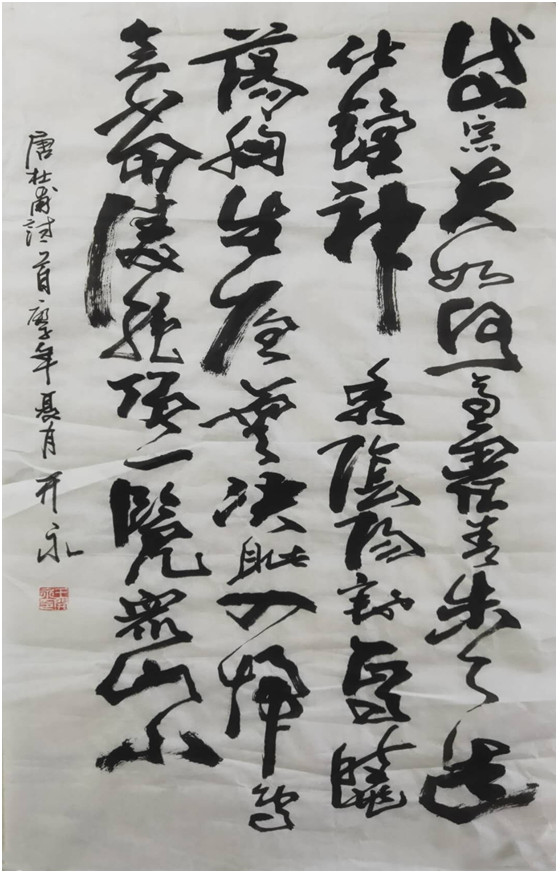 岱宗夫如何齊魯青未了造
化鐘神秀陰陽割昏曉
蕩胸生層雲決眦入歸鳥
會當凌絕頂一覽眾山小
唐杜甫詩一首庚子年夏月开永